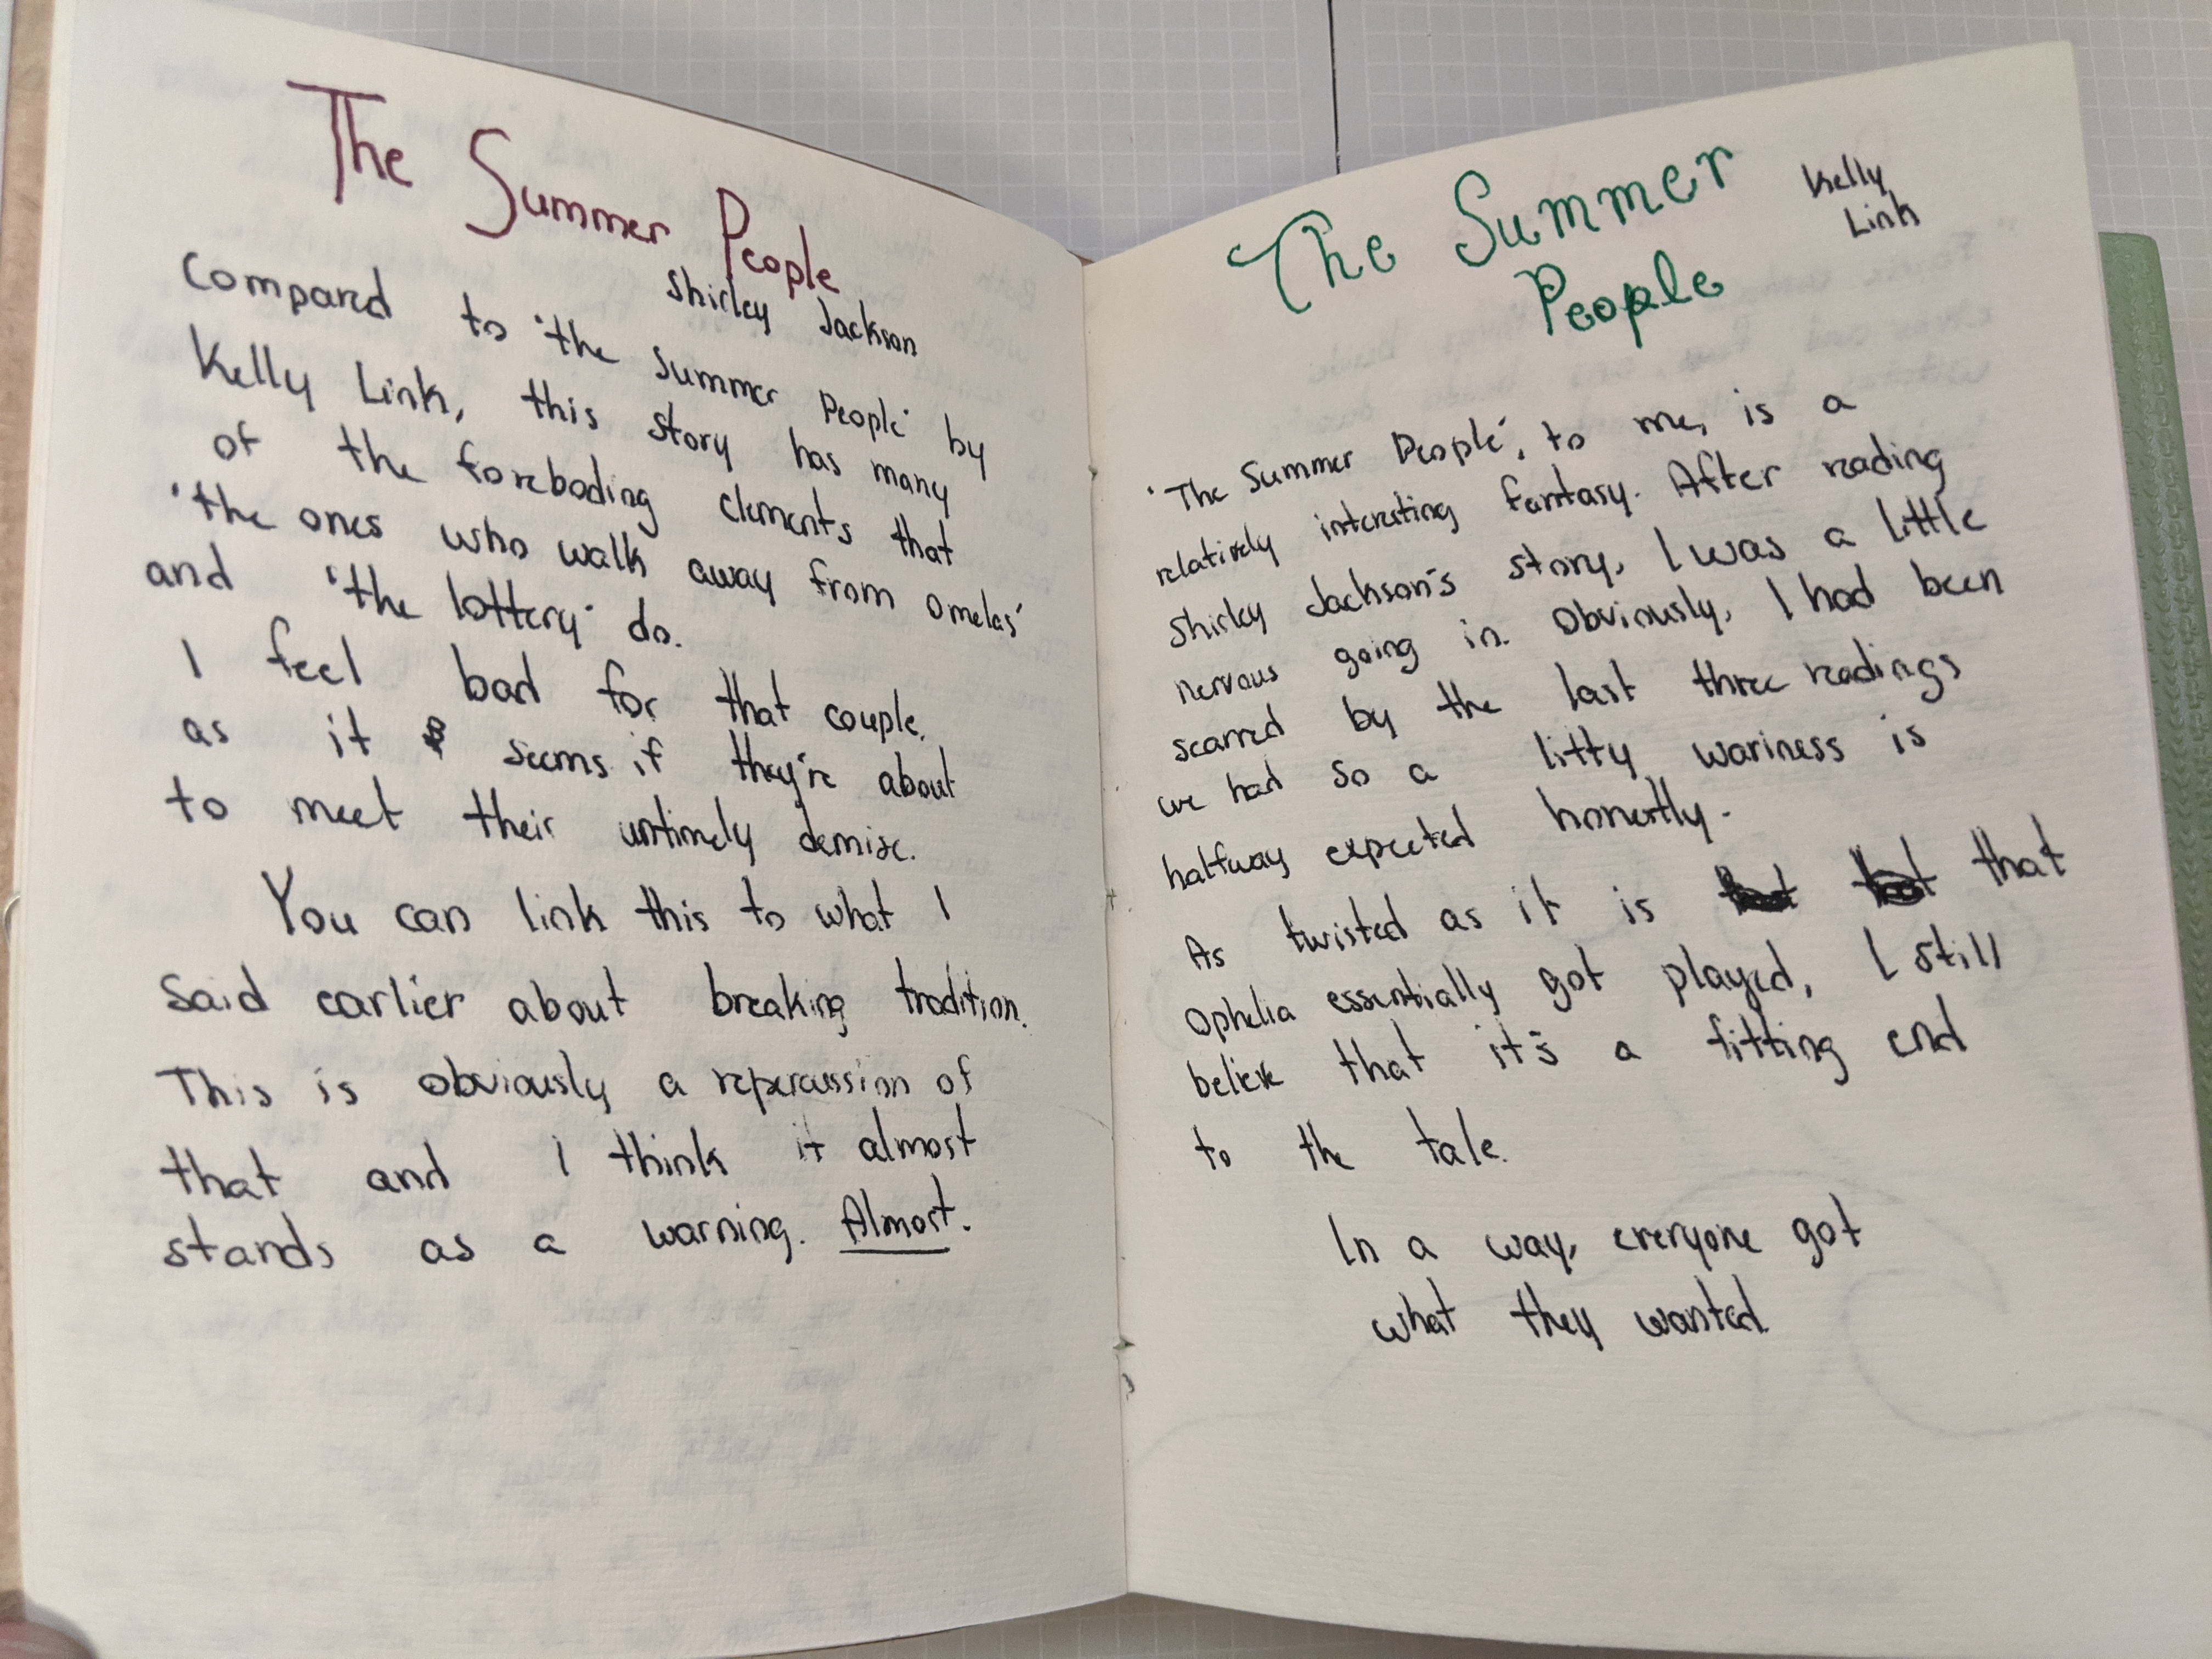 The Summer People
Shirley Jackson
Compared to 'the Summer People' by
Kelly Link, this story has many
of the foreboding elements that
'the ones who walk away from omelas'
and 'the lottery' do.
I feel bad for that couple,
as it seems if they're about
to meet their untimely demise.
You can link this to what I
said earlier about breaking tradition.
This is obviously a repercussion of
that and I think it almost
stands as a warning. Almost.
The Summer
People
Kelly
Link
'The Summer People', to me, is a
relatively interesting fantasy. After reading
Shirley Jackson's story, I was a little
nervous going in. Obviously, I had been
scarred by the last three readings
we had so a litty wariness is
halfway expected honestly.
As twisted as it is that
Ophelia essentially got played, I still
believe that it's a fitting end
to the tale.
In a way, everyone got
what they wanted.